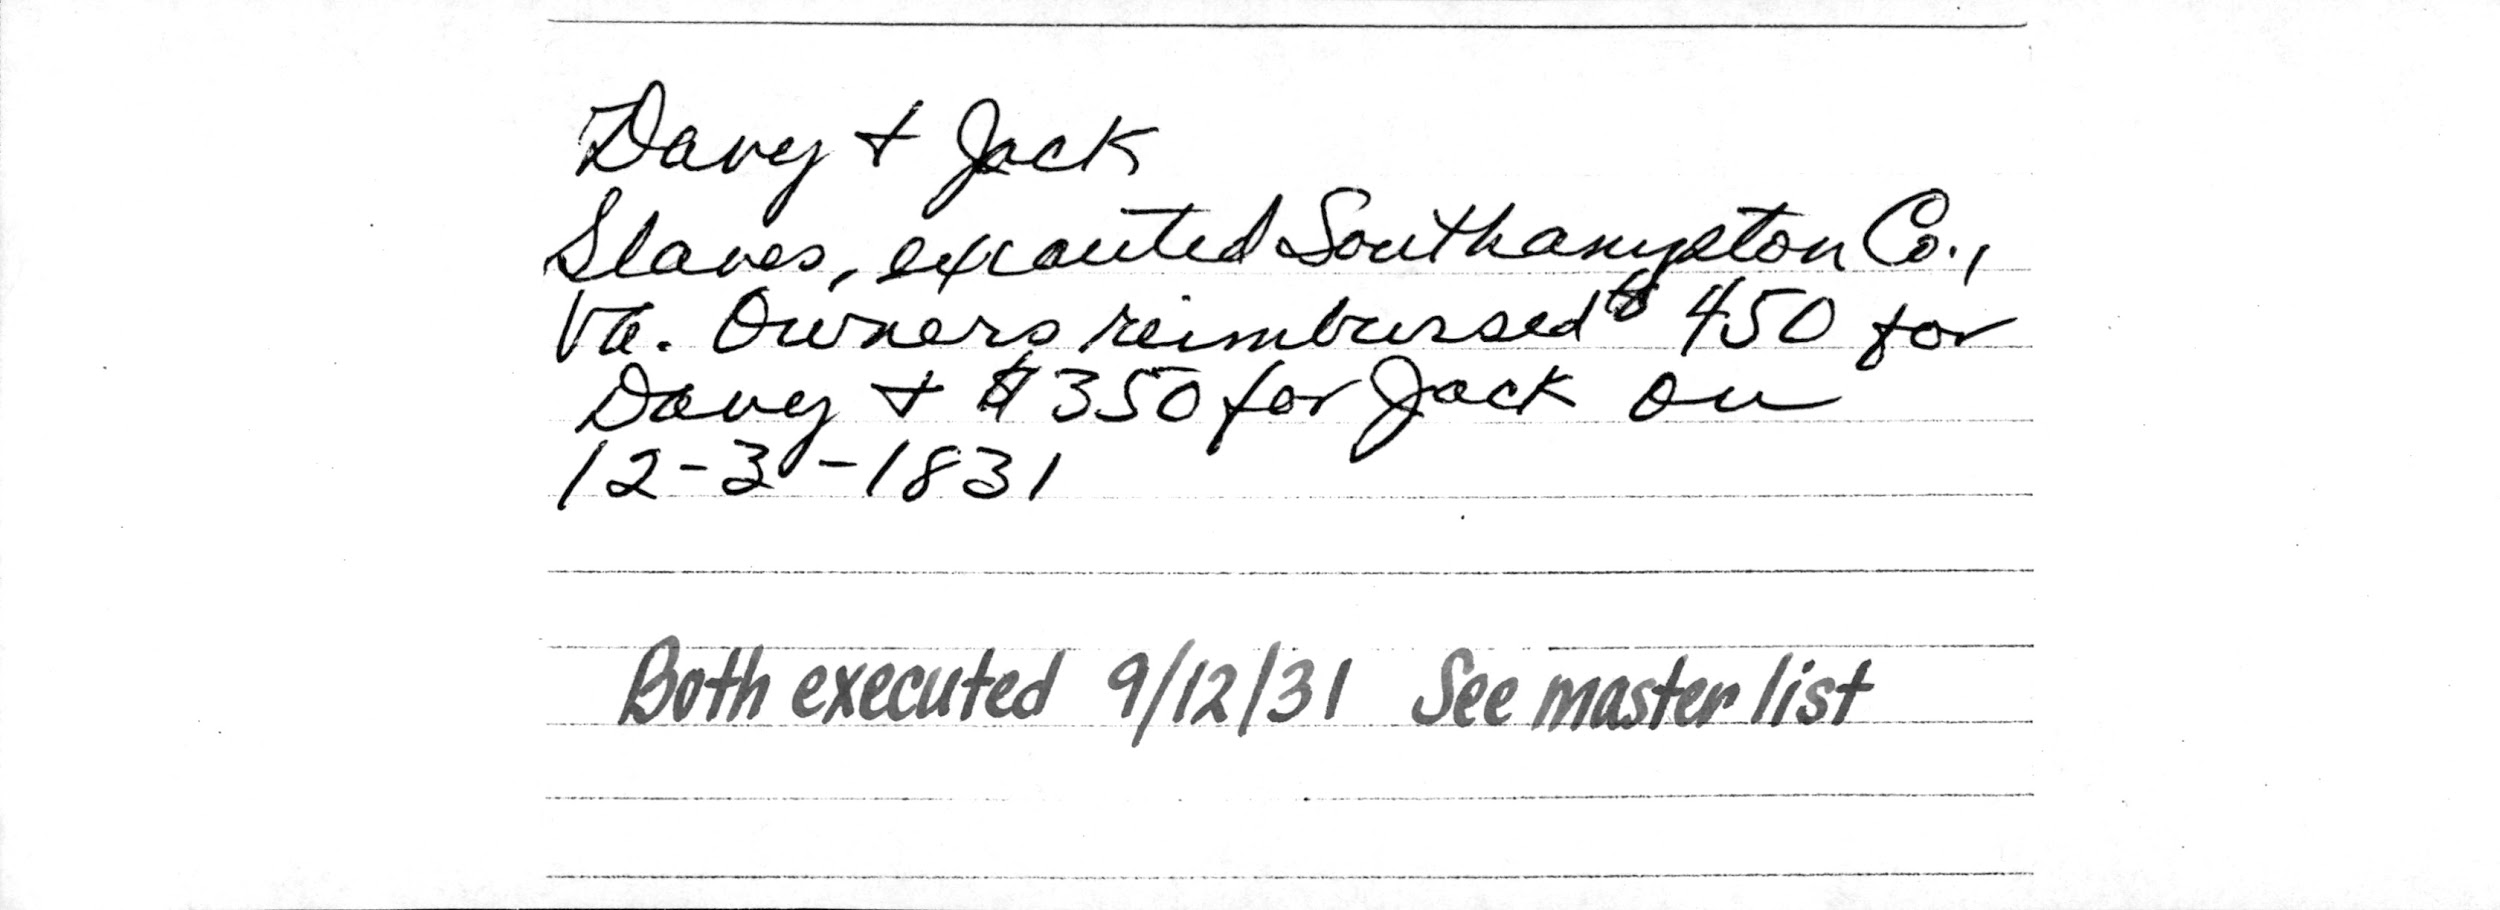 Davy + Jack
Slaves, executed Southampton Co.,
Va. Owners reimbursed $450 for
Davy + $350 for Jack on
12-3-1831
Both executed 9/12/31 See master list